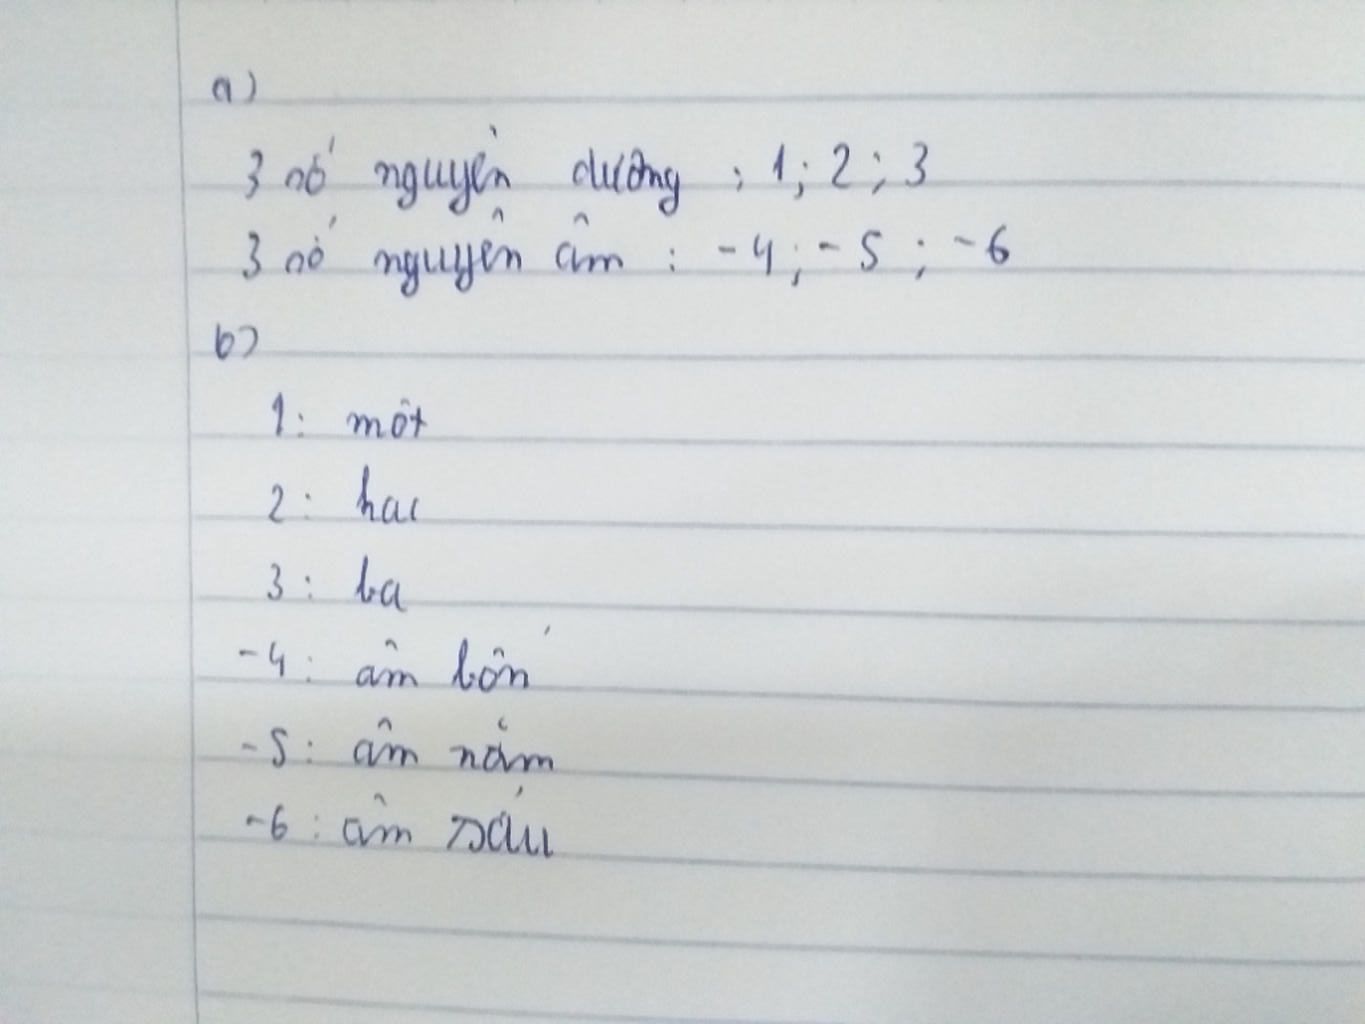 a)
3 số nguyên dương : 1 ; 2 ; 3
3 số nguyên âm : -4 ; -5 ; -6
b)
1: một
2: hai
3: ba
-4: âm bốn
-5: âm năm
-6: âm sáu